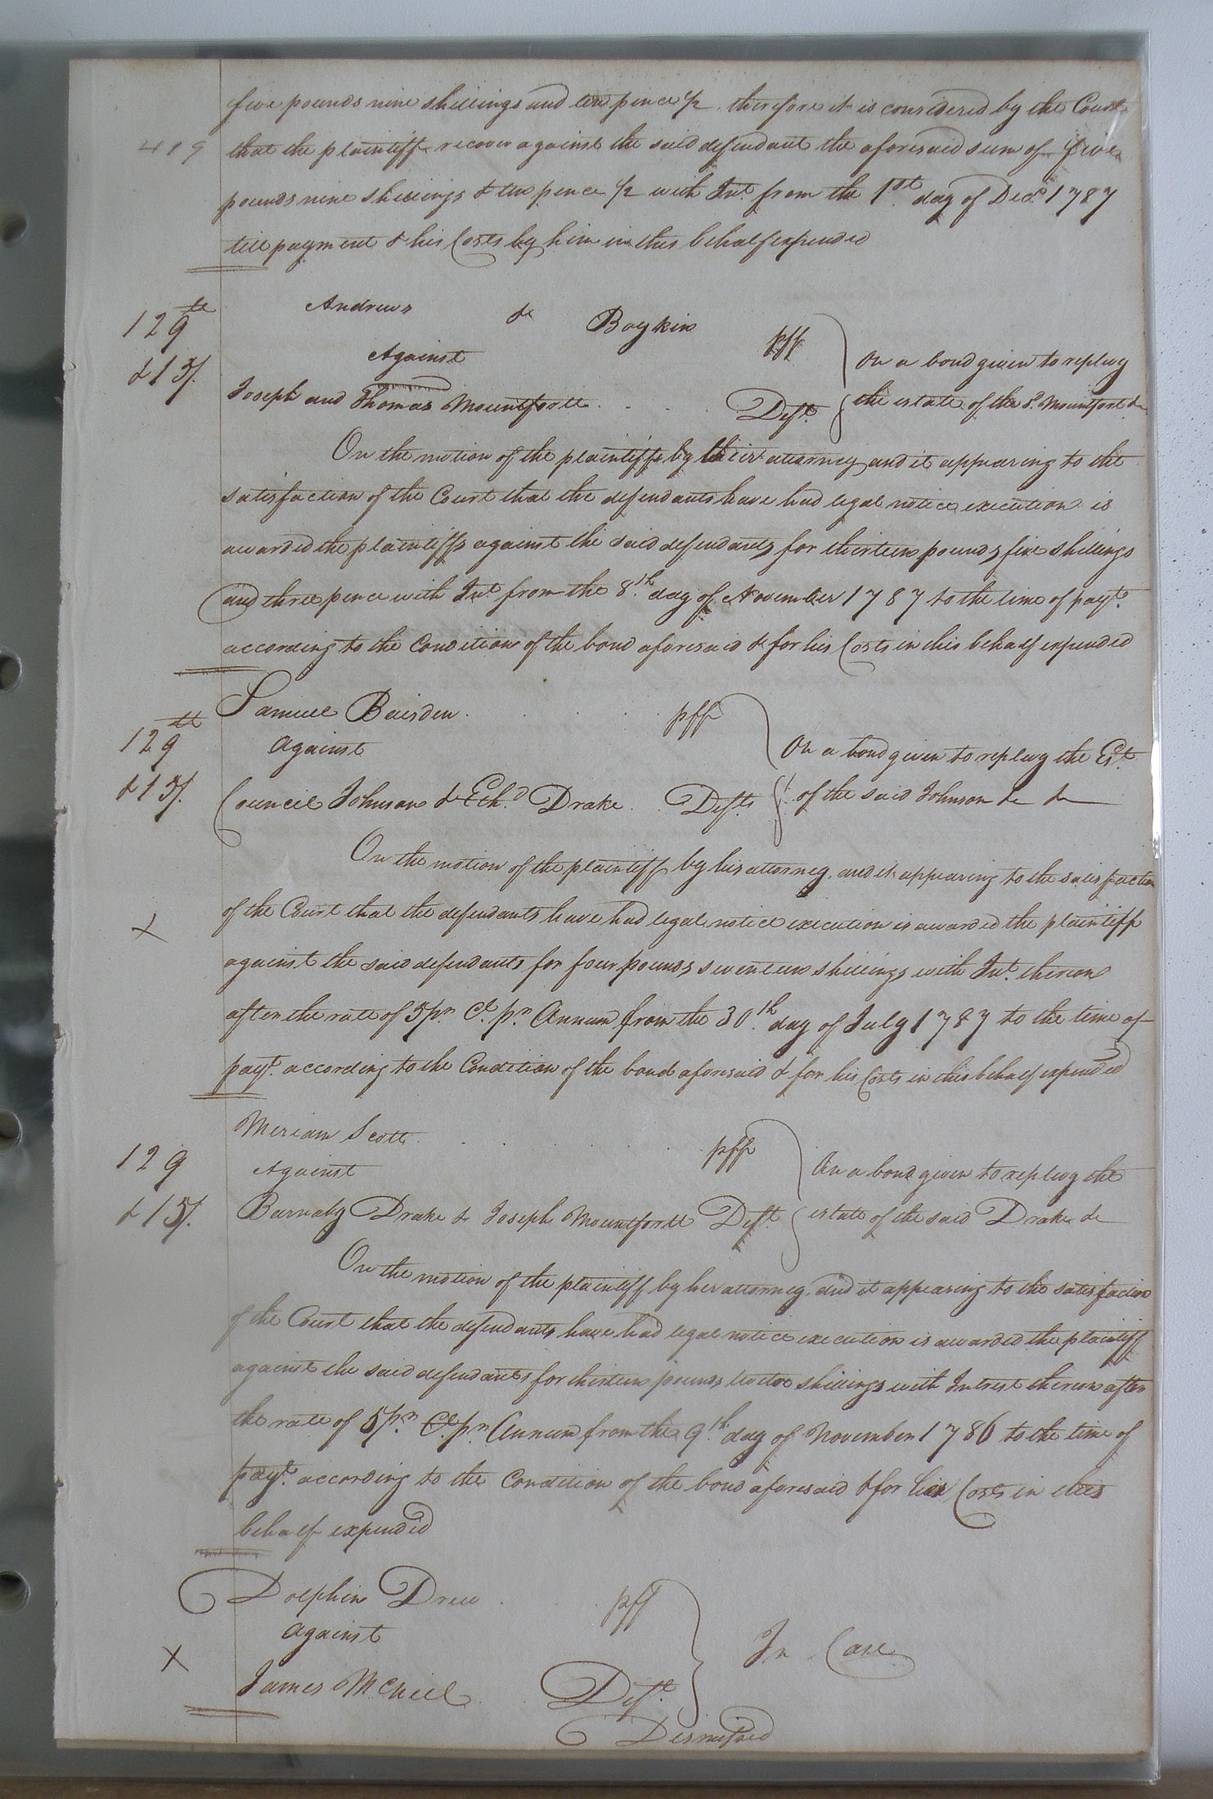 five pounds nine shillings and ten pence ½ therefore it is considered by the Court
419
that the plaintiff recover against the said defendant the aforesaid sum of five
pounds nine shillings & ten pence ½ with Int. from the 1st day of Dec. 1787
till payment & his Costs by him in this behalf expended
129 lb
& 15/.
Andrews & Boykin pff
Against
Joseph and Thomas Mountfortt Deft.
On a bond given to replevy
the estate of the sd. Mountfort &
On the motion of the plaintiffs by their attorney and it appearing to the
satisfaction of the Court that the defendants have had legal notice execution is
awarded the plaintiffs against the said defendants for thirteen pounds five shillings
and three pence with Int from the 8th day of November 1787 to the time of payt.
according to the Condition of the bond aforesaid & for his Costs in this behalf expended
129 lb
& 15/.
Samuel Bairden pff
Against
Council Johnson & Ed. Drake Defts
On a bond given to replevy the Est.
of the said Johnson & &
On the motion of the plaintiff by his attorney, and it appearing to the satisfaction
X
of the Court that the defendants have had legal notice execution is awarded the plaintiff
against the said defendants for four pounds seventeen shillings with Int. thereon
after the rate of 5 pr. Ct. pr. Annum from the 30th day of July 1787 to the time of
payt. according to the Condition of the bond aforesaid & for his Costs in this behalf expended
129
& 15/.
Miriam Scott pff
Against
Barnaby Drake & Joseph Mountfortt Deft.
On a bond given to replevy the
estate of the said Drake &
On the motion of the plaintiff by her attorney, and it appearing to the satisfaction
of the Court that the defendants have had legal notice execution is awarded the plaintiff
against the said defendants for thirteen pounds twelve shillings with Intrest thereon after
the rate of 5 pr. Ct. pr. Annum from the 9th day of November 1786 to the time of
payt. according to the Condition of the bond aforesaid & for her Costs in this
behalf expended
Dolphin Drew pff
against
X
James McNeil Deft.
In Case
Dismissed